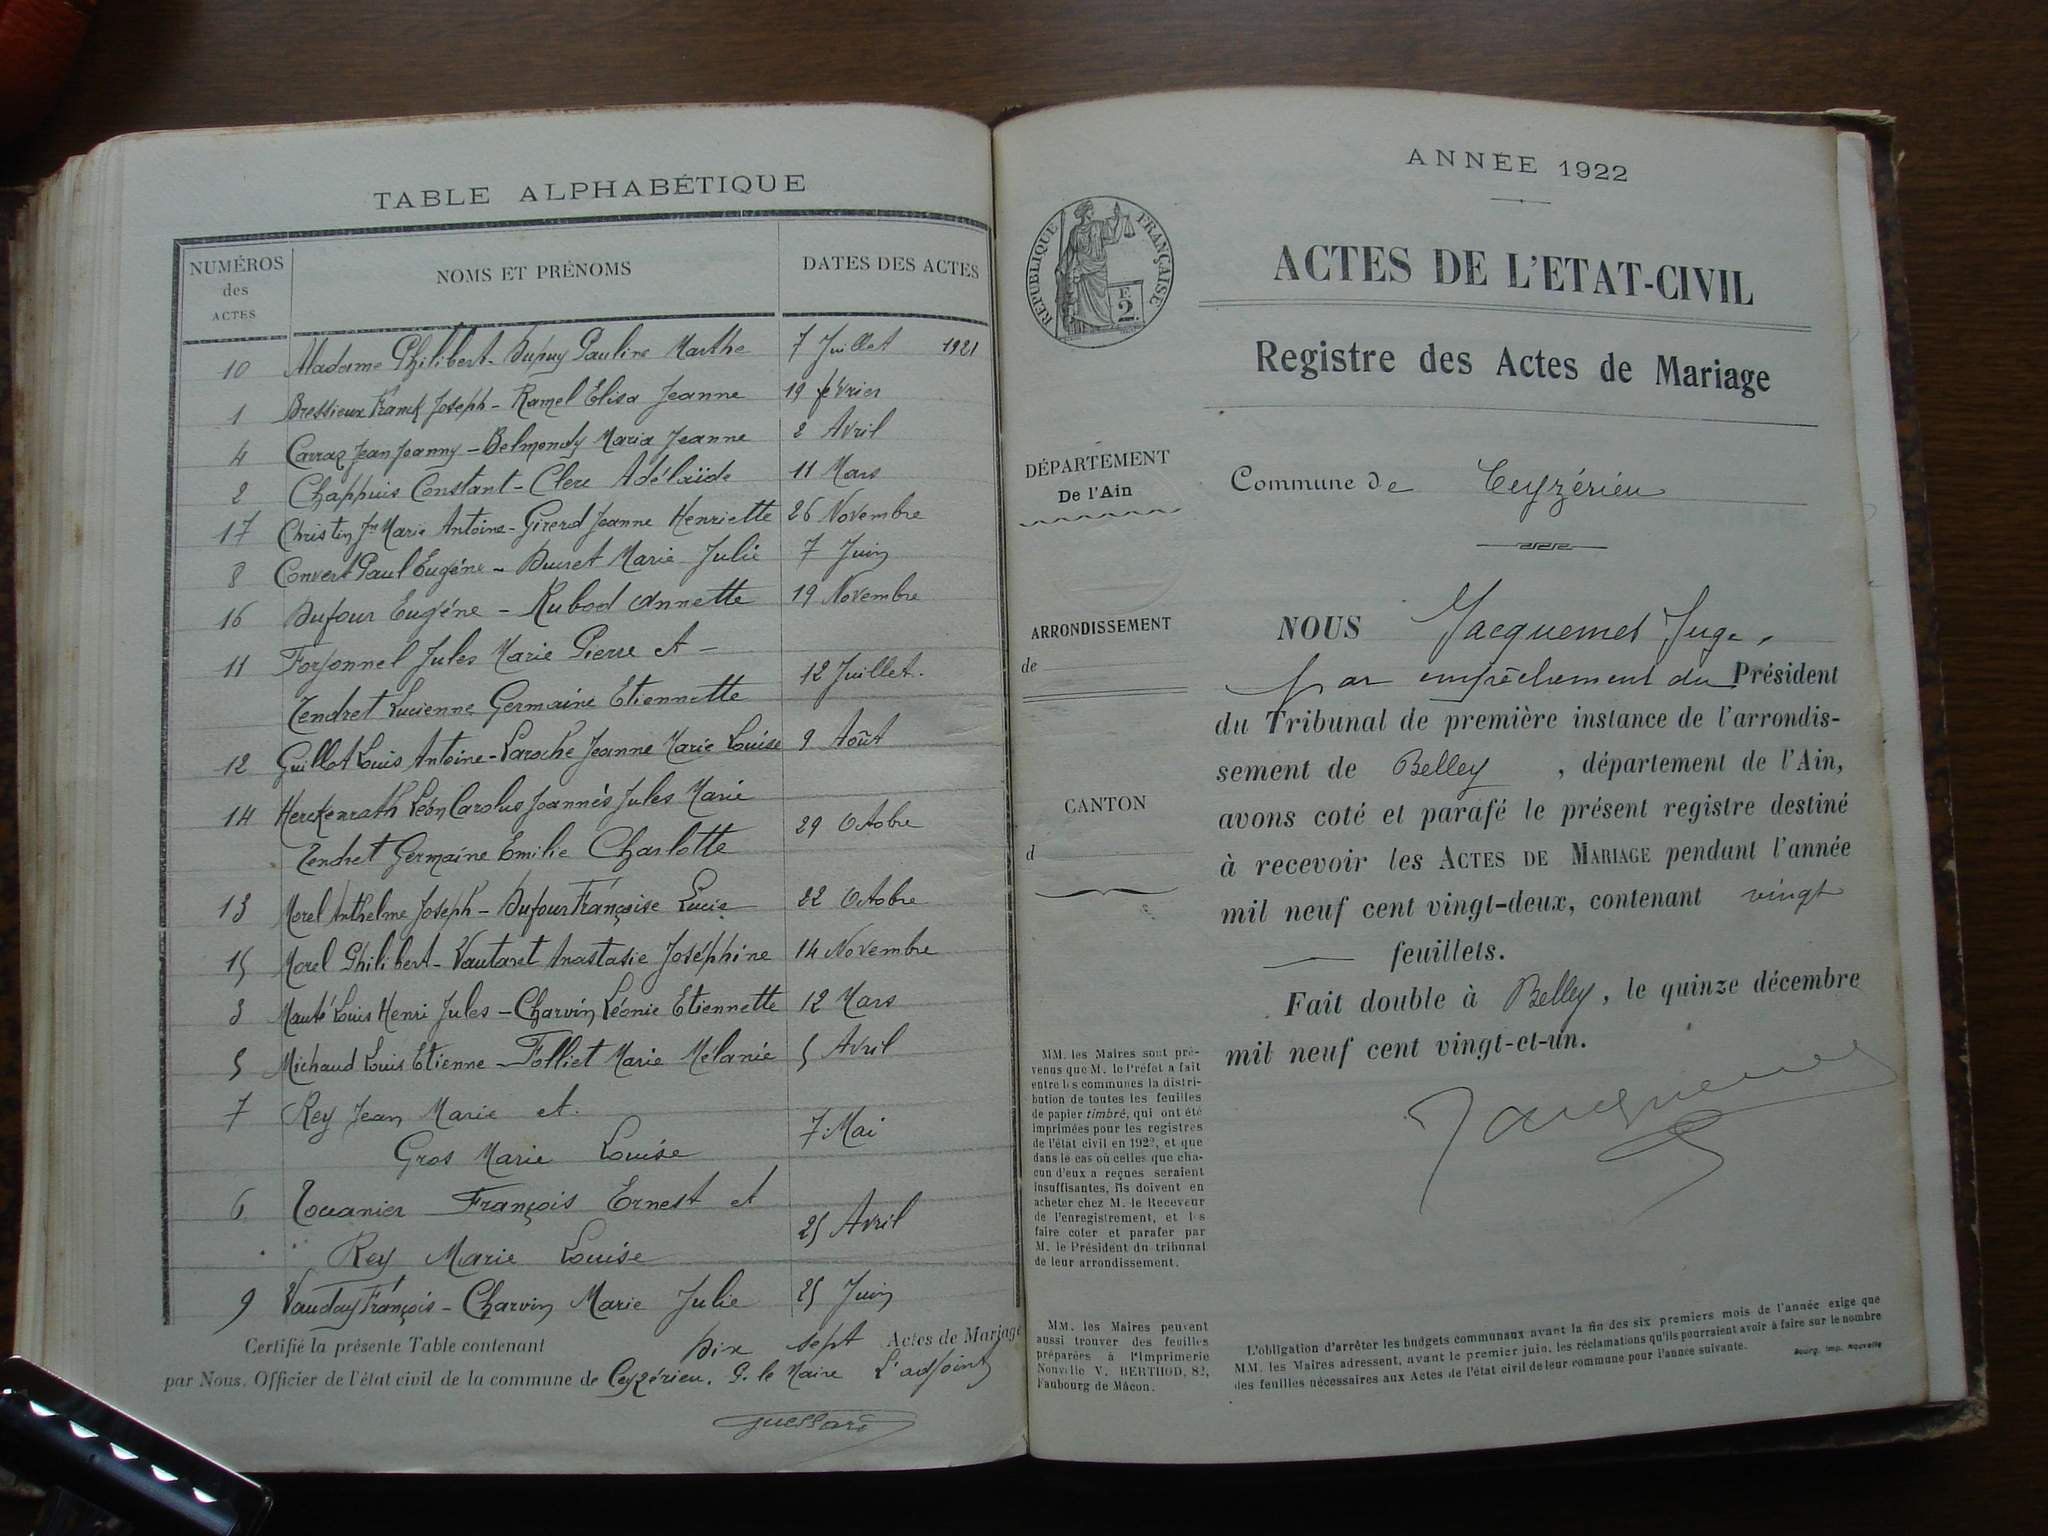 TABLE ALPHABÉTIQUE
NUMÉROS des ACTES
NOMS ET PRÉNOMS
DATES DES ACTES
10 Madame Philibert - Dupuy Pauline Marthe 7 Juillet 1921
1 Bressieux Franck Joseph - Ramel Elisa Jeanne 19 février
4 Carraz Jean Joanny - Belmondy Maria Jeanne 2 Avril
2 Chappuis Constant - Clerc Adélaïde 11 Mars
17 Christin Jn Marie Antoine - Girerd Jeanne Henriette 26 Novembre
8 Convert Paul Eugéne - Ducret Marie Julie 7 Juin
16 Dufour Eugéne - Rubod Annette 19 Novembre
11 Forjonnel Jules Marie Pierre et -
Tendret Lucienne Germaine Etiennette 12 Juillet.
12 Guillot Louis Antoine - Laroche Jeanne Marie Louise 9 Août
14 Herckenrath Léon Carolus Joannés Jules Marie
Tendret Germaine Emilie Charlotte 29 Octobre
13 Morel Anthelme Joseph - Dufour Françoise Lucie 22 Octobre
15 Morel Philibert - Vautaret Anastasie Joséphine 14 Novembre
3 Mauté Louis Henri Jules - Charvin Léonie Etiennette 12 Mars
5 Michaud Louis Etienne - Folliet Marie Mélanie 5 Avril
7 Rey Jean Marie et.
Gros Marie Louise 7 Mai
6 Touanier François Ernest et
Rey Marie Louise 25 Avril
9 Vauday François - Charvin Marie Julie 25 Juin
Certifié la présente Table contenant Dix sept Actes de Mariage
par Nous, Officier de l'état civil de la commune de Ceyzérieu. P. le Maire L'adjoint
ANNÉE 1922
RÉPUBLIQUE FRANÇAISE
F.
2.
ACTES DE L'ETAT-CIVIL
Registre des Actes de Mariage
DÉPARTEMENT
De l'Ain
Commune de Ceyzérieu
ARRONDISSEMENT
de
CANTON
d
NOUS Jacquemet Juge,
par empêchement du Président
du Tribunal de première instance de l'arrondis-
sement de Belley , département de l'Ain,
avons coté et parafé le présent registre destiné
à recevoir les ACTES DE MARIAGE pendant l'année
mil neuf cent vingt-deux, contenant vingt
feuillets.
Fait double à Belley, le quinze décembre
mil neuf cent vingt-et-un.
Jacquemet
MM. les Maires sont pré-
venus que M. le Préfet a fait
entre les communes la distri-
bution de toutes les feuilles
de papier timbré, qui ont été
imprimées pour les registres
de l'état civil en 1922, et que
dans le cas où celles que cha-
cun d'eux a reçues seraient
insuffisantes, ils doivent en
acheter chez M. le Receveur
de l'enregistrement, et les
faire coter et parafer par
M. le Président du tribunal
de leur arrondissement.
MM. les Maires peuvent
aussi trouver des feuilles
préparées à l'Imprimerie
Nouvelle V. BERTHOD, 82,
Faubourg de Mâcon.
L'obligation d'arrêter les budgets communaux avant la fin des six premiers mois de l'année exige que
MM. les Maires adressent, avant le premier juin, les réclamations qu'ils pourraient avoir à faire sur le nombre
des feuilles nécessaires aux Actes de l'état civil de leur commune pour l'année suivante.
Bourg, Imp. Nouvelle